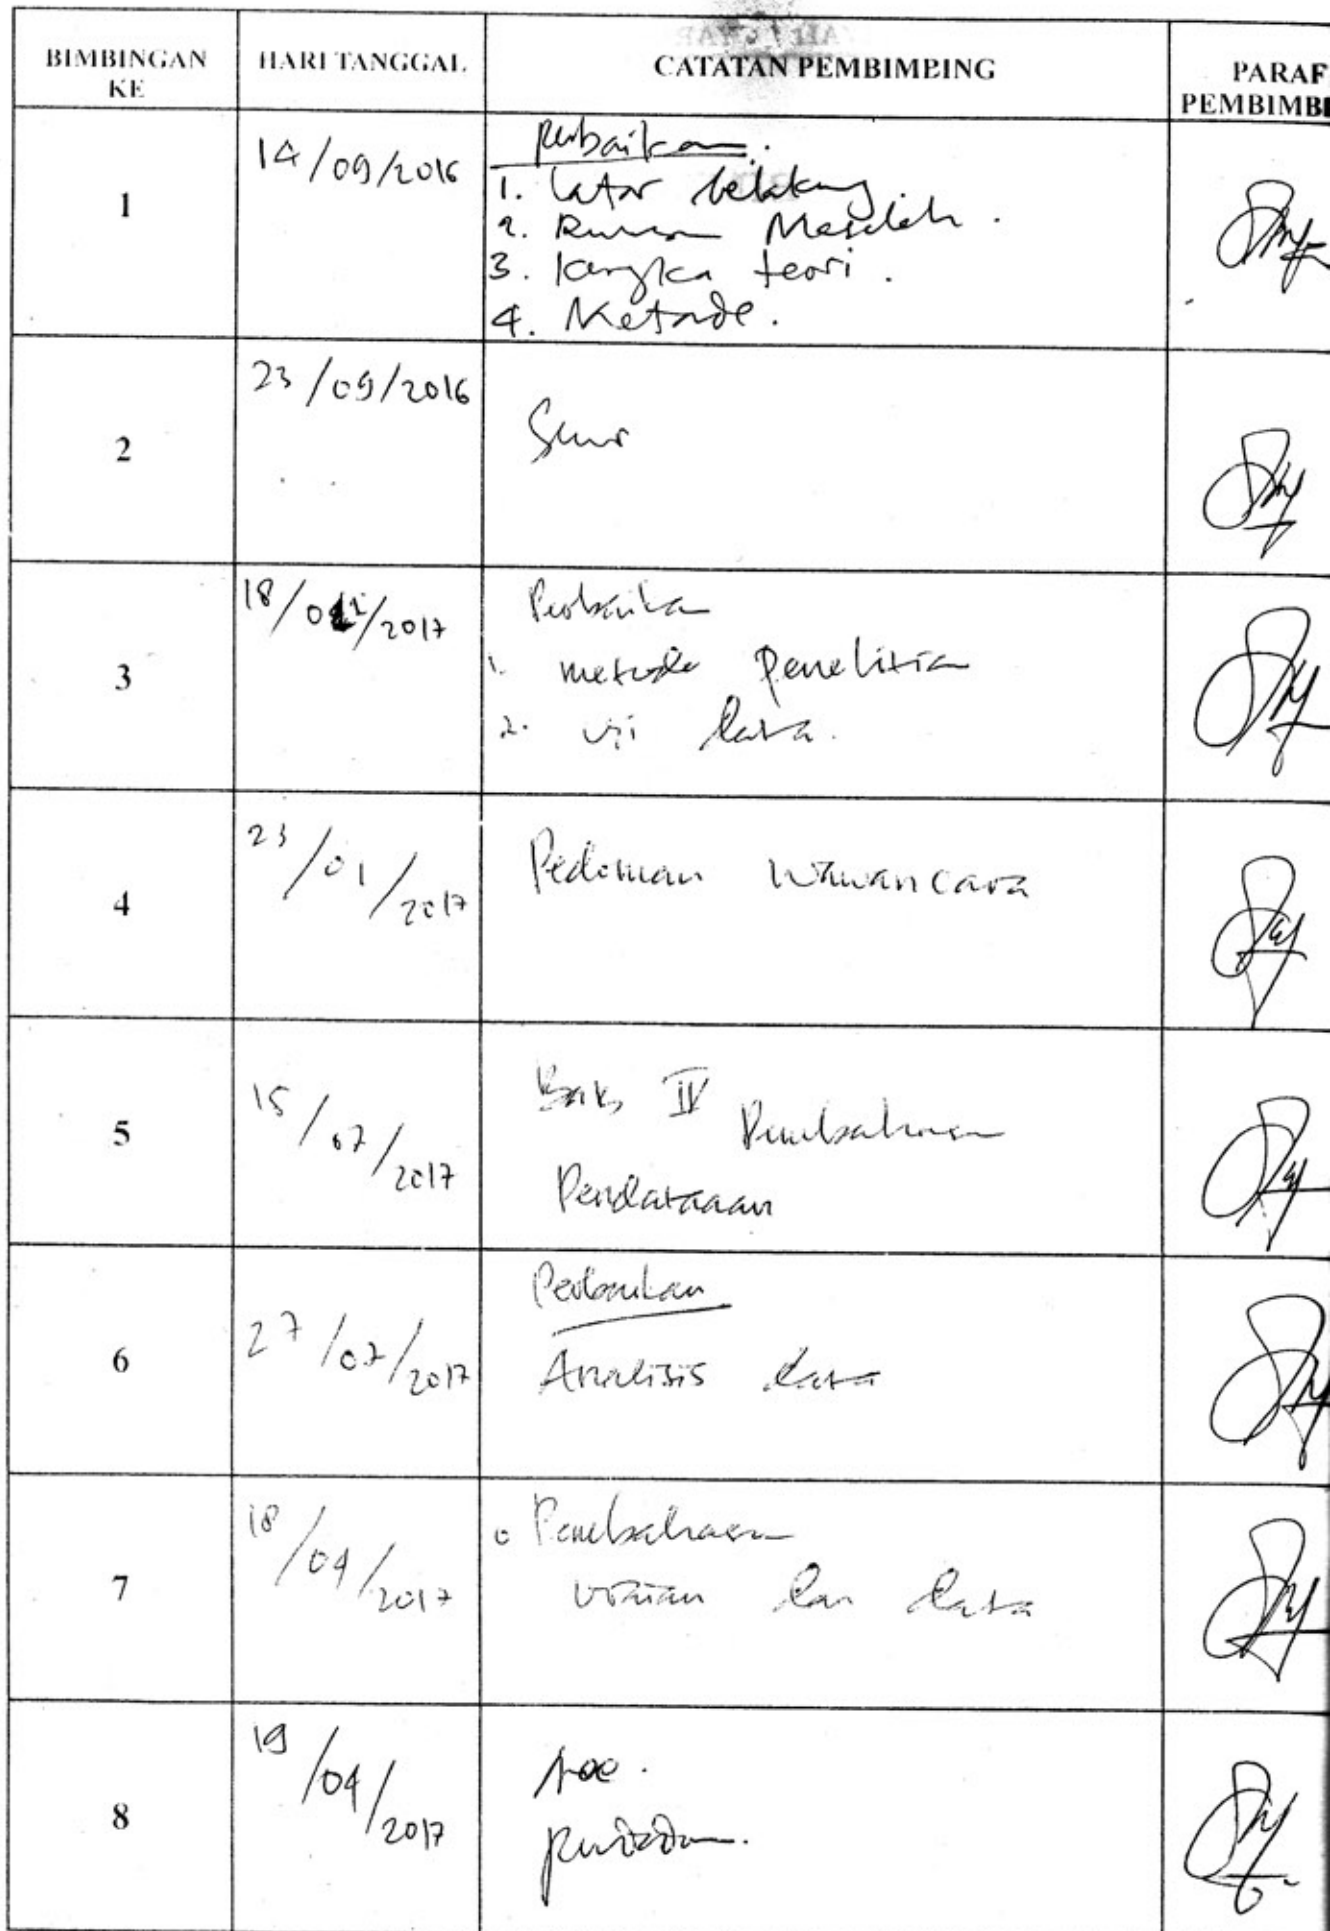 BIMBINGAN KE HARI TANGGAL CATATAN PEMBIMBING PARAF PEMBIMBI
1 14/09/2016 perbaikan.
1. Latar belakang
2. Rumusan Masalah.
3. kerangka teori.
4. Metode.
2 23/09/2016
3 18/01/2017 Perbaikan
1. metode penelitian
2. uji data.
4 23/01/2017 Pedoman wawancara
5 15/07/2017 Bab IV Pembahasan
6 27/07/2017 Perbaikan
Analisis data
7 18/04/2017 Pembahasan
uraian dan data
8 19/04/2017 Acc.